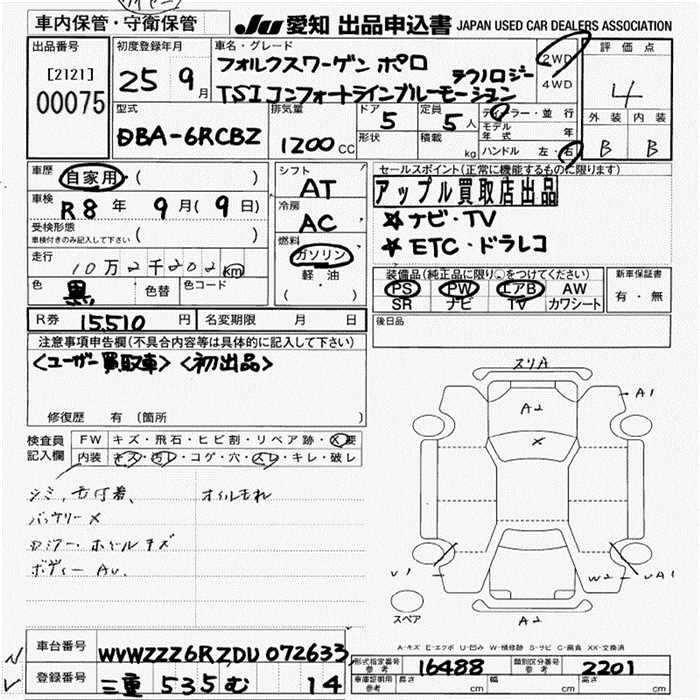 車内保管・守衛保管
JU 愛知 出品申込書 JAPAN USED CAR DEALERS ASSOCIATION
出品番号
[2121]
00075
初度登録年月
25 9月
車名・グレード
フォルクスワーゲン ポロ テクノロジー
TSIコンフォートラインブルーモーション
2WD
4WD
評価点
4
外装 内装
B B
型式
DBA-6RCBZ
排気量
1200 CC
ドア
5
形状
定員
5人
積載
kg
ディーラー・並行
モデル年式 年
ハンドル 左・右
車歴
自家用 ( )
車検
R8年 9月(9日)
受検形態
車検付きのみ記入して下さい ( )
走行
10万2千202km
色
黒
色替
色コード
シフト
AT
冷房
AC
燃料
ガソリン
軽・油
( )
セールスポイント(正常に機能するものに限ります)
アップル買取店出品
☆ナビ・TV
★ETC・ドラレコ
装備品(純正品に限り○をつけてください)
PS PW エアB AW
SR ナビ TV カワシート
新車保証書
有・無
R券 15,510円
名変期限 月 日
後日品
注意事項申告欄(不具合内容等は具体的に記入して下さい)
<ユーザー買取車> <初出品>
修復歴 有 (箇所 )
検査員記入欄
FW キズ・飛石・ヒビ割・リペア跡・X要
内装 キズ・汚レ・コゲ・穴・スレ・キレ・破レ
オイルモレ
バッテリーX
ホイールキズ
ボディー AU.
スリA
A2
A1
X
V1
W2
UA1
A2
スペア
A-キズ E-エクボ U-凹み W-補修跡 S-サビ C-腐食 XX-交換済
車台番号
WVWZZZ6RZDU072633
登録番号
三重 535 む 14
形式指定番号
参考
16488
類別区分番号
参考
2201
車庫証明用
参考
長さ cm 幅 cm 高さ cm